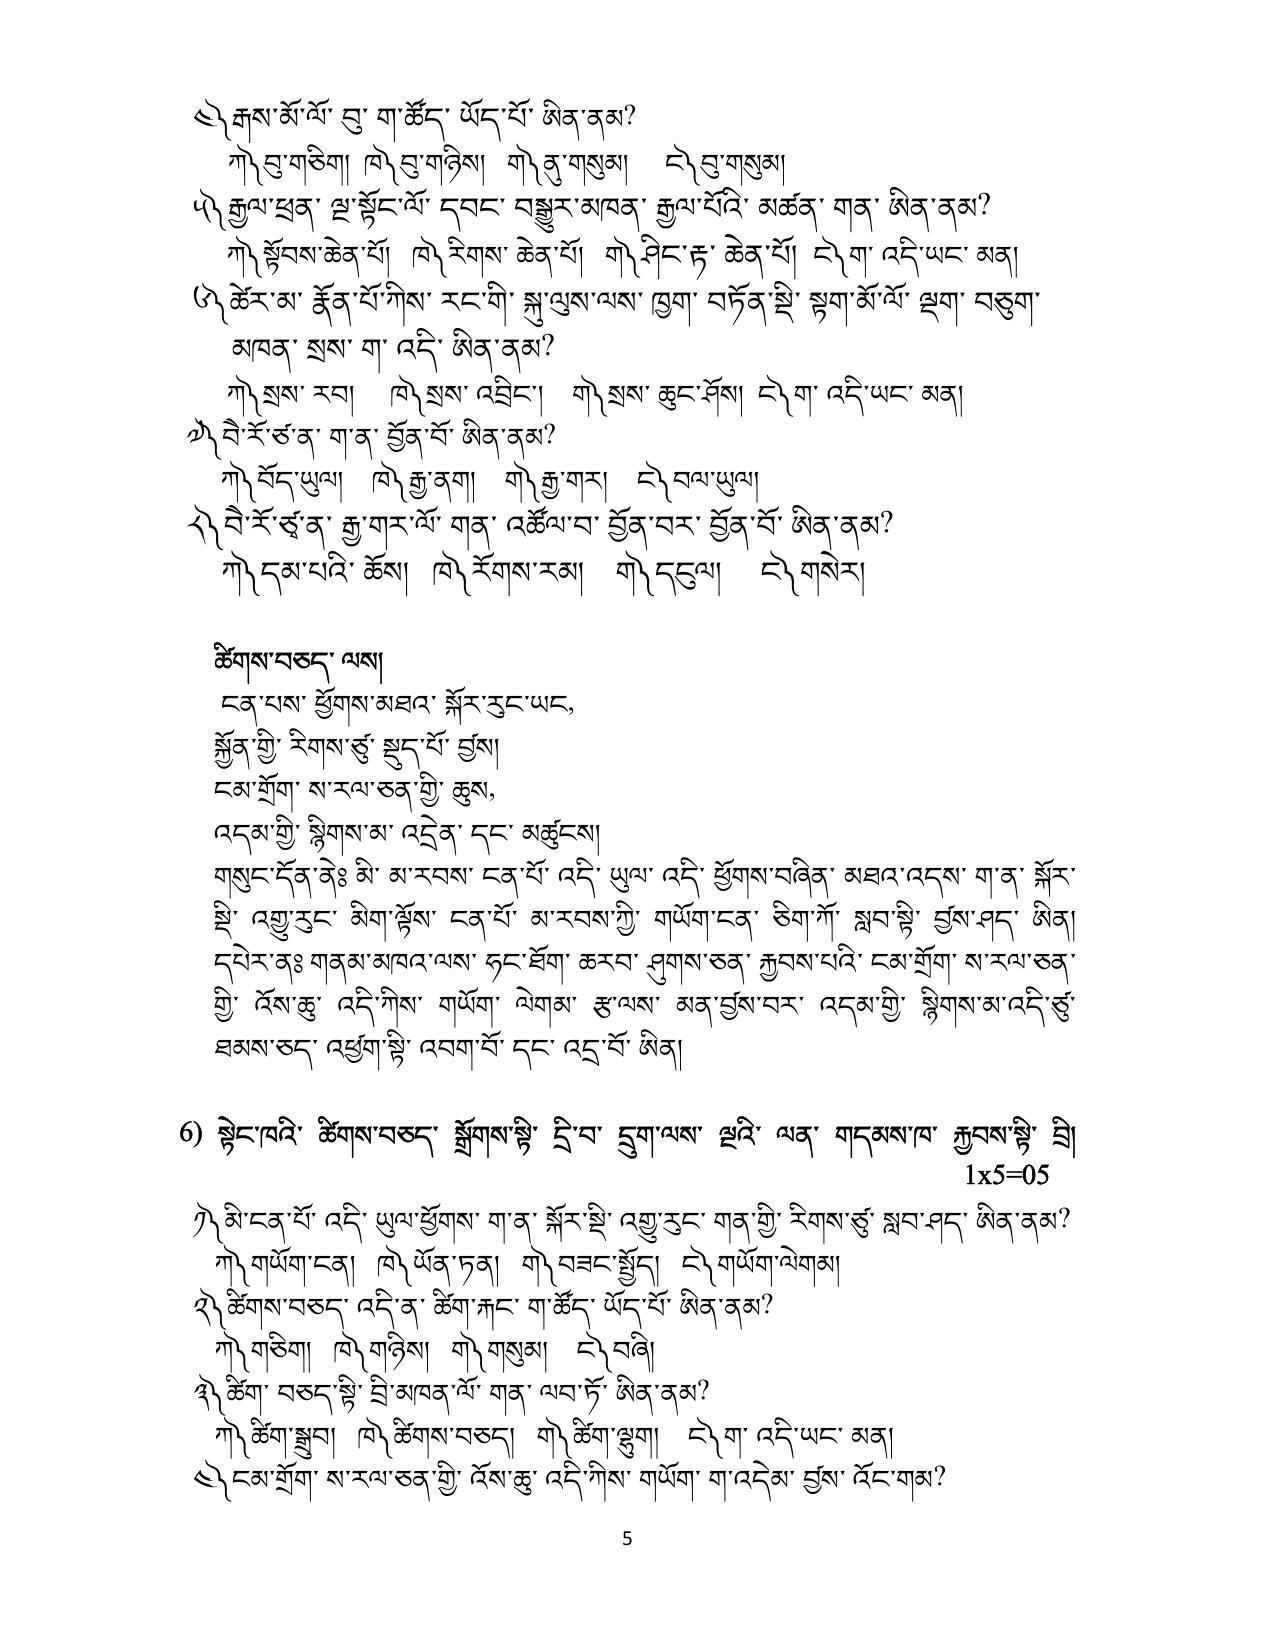 ༤༽ རྒས་མོ་ལོ་ བུ་ ག་ཚོད་ ཡོད་པོ་ ཨིན་ནམ?
ཀ༽ བུ་གཅིག། ཁ༽ བུ་གཉིས། ག༽ ནུ་གསུམ། ང༽ བུ་གསུམ།
༥༽ རྒྱལ་ཕྲན་ ལྔ་སྟོང་ལོ་ དབང་ བསྒྱུར་མཁན་ རྒྱལ་པོའི་ མཚན་ གན་ ཨིན་ནམ?
ཀ༽ སྟོབས་ཆེན་པོ། ཁ༽ རིགས་ ཆེན་པོ། ག༽ ཤིང་རྟ་ ཆེན་པོ། ང༽ ག་ འདི་ཡང་ མན།
༦༽ ཚེར་མ་ རྣོན་པོ་ཀིས་ རང་གི་ སྐུ་ལུས་ལས་ ཁྱག་ བཏོན་སྡི་ སྟག་མོ་ལོ་ ལྡག་ བཅུག་
མཁན་ སྲས་ ག་ འདི་ ཨིན་ནམ?
ཀ༽ སྲས་ རབ། ཁ༽ སྲས་ འབྲིང་། ག༽ སྲས་ ཆུང་ཤོས། ང༽ ག་ འདི་ཡང་ མན།
༧༽ བཻ་རོ་ཙ་ན་ ག་ན་ བྱོན་བོ་ ཨིན་ནམ?
ཀ༽ བོད་ཡུལ། ཁ༽ རྒྱ་ནག། ག༽ རྒྱ་གར། ང༽ བལ་ཡུལ།
༨༽ བཻ་རོ་ཙཱ་ན་ རྒྱ་གར་ལོ་ གན་ འཚོལ་བ་ བྱོན་བར་ བྱོན་བོ་ ཨིན་ནམ?
ཀ༽ དམ་པའི་ ཆོས། ཁ༽ རོགས་རམ། ག༽ དངུལ། ང༽ གསེར།
ཚིགས་བཅད་ ལས།
ངན་པས་ ཕྱོགས་མཐའ་ སྐོར་རུང་ཡང,
སྐྱོན་གྱི་ རིགས་ཙུ་ སྡུད་པོ་ བྱས།
ངམ་གྲོག་ ས་རལ་ཅན་གྱི་ ཆུས,
འདམ་གྱི་ སྙིགས་མ་ འདྲེན་ དང་ མཚུངས།
གསུང་དོན་ནེཿ མི་ མ་རབས་ ངན་པོ་ འདི་ ཡུལ་ འདི་ ཕྱོགས་བཞིན་ མཐའ་འདས་ ག་ན་ སྐོར་
སྡི་ འགྱུ་རུང་ མིག་ལྟོས་ ངན་པོ་ མ་རབས་ཀྱི་ གཡོག་ངན་ ཅིག་ཀོ་ སླབ་སྟི་ བྱས་ཤད་ ཨིན།
དཔེར་ནཿ གནམ་མཁའ་ལས་ ཧང་ཐོག་ ཆརབ་ ཤུགས་ཅན་ རྐྱབས་པའི་ ངམ་གྲོག་ ས་རལ་ཅན་
གྱི་ འོས་ཆུ་ འདི་ཀིས་ གཡོག་ ལེགམ་ རྩ་ལས་ མན་བྱས་བར་ འདམ་གྱི་ སྙིགས་མ་འདི་ཙུ་
ཐམས་ཅད་ འཕྱག་སྟི་ འབག་བོ་ དང་ འདྲ་བོ་ ཨིན།
6) སྟེང་ཁའི་ ཚིགས་བཅད་ སྒྲོགས་སྟི་ དྲི་བ་ དྲུག་ལས་ ལྔའི་ ལན་ གདམས་ཁ་ རྐྱབས་སྟི་ བྲི།
1x5=05
༡༽ མི་ངན་པོ་ འདི་ ཡུལ་ཕྱོགས་ ག་ན་ སྐོར་སྡི་ འགྱུ་རུང་ གན་གྱི་ རིགས་ཙུ་ སླབ་ཤད་ ཨིན་ནམ?
ཀ༽ གཡོག་ངན། ཁ༽ ཡོན་ཏན། ག༽ བཟང་སྤྱོད། ང༽ གཡོག་ལེགམ།
༢༽ ཚིགས་བཅད་ འདི་ན་ ཚིག་རྐང་ ག་ཚོད་ ཡོད་པོ་ ཨིན་ནམ?
ཀ༽ གཅིག། ཁ༽ གཉིས། ག༽ གསུམ། ང༽ བཞི།
༣༽ ཚིག་ བཅད་སྟི་ བྲི་མཁན་ལོ་ གན་ ལབ་ཏོ་ ཨིན་ནམ?
ཀ༽ ཚིག་སྒྲུབ། ཁ༽ ཚིགས་བཅད། ག༽ ཚིག་ལྷུག། ང༽ ག་ འདི་ཡང་ མན།
༤༽ ངམ་གྲོག་ ས་རལ་ཅན་གྱི་ འོས་ཆུ་ འདི་ཀིས་ གཡོག་ ག་འདེམ་ བྱས་ འོང་གམ?
5